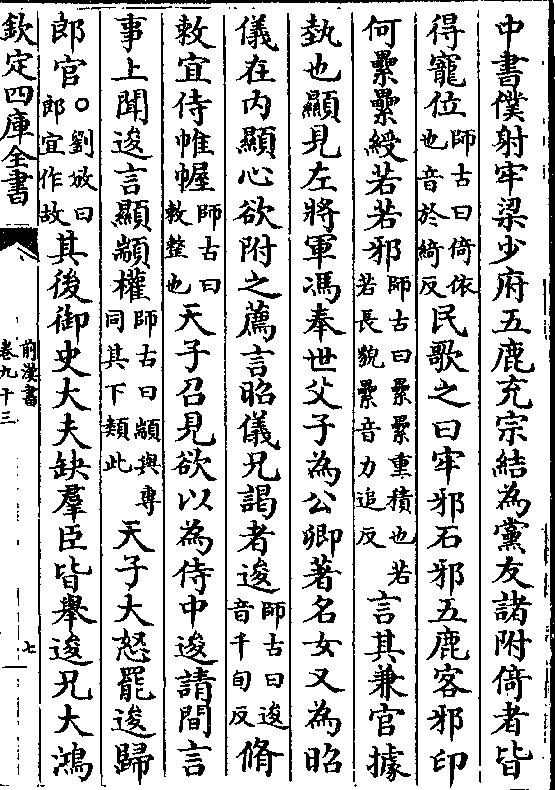 中書僕射牢梁少府五鹿充宗結為黨友諸附倚者皆
得寵位師古曰倚依也音於綺反民歌之曰牢邪石邪五鹿客邪印
何纍纍綬若若邪師古曰纍纍重積也若若長貌纍音力追反言其兼官據
埶也顯見左將軍馮奉世父子為公卿著名女又為昭
儀在內顯心欲附之薦言昭儀兄謁者逡師古曰逡音千旬反脩
敕宜侍帷幄師古曰敕整也天子召見欲以為侍中逡請間言
事上聞逡言顯顓權師古曰顓與專同其下類此天子大怒罷逡歸
郎官○劉攽曰郎宜作故其後御史大夫缺羣臣皆舉逡兄大鴻
欽定四庫全書
前漢書
卷九十三
七